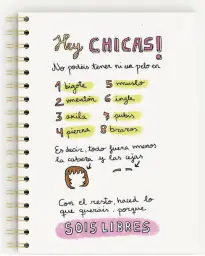 Hey CHICAS!
No podéis tener ni un pelo en
1 bigote 5 muslo
2 mentón 6 ingle
3 axila 7 pubis
4 pierna 8 brazos
Es decir, todo fuera menos
la cabeza y las cejas
Con el resto, haced lo
que queráis, porque
SOIS LIBRES